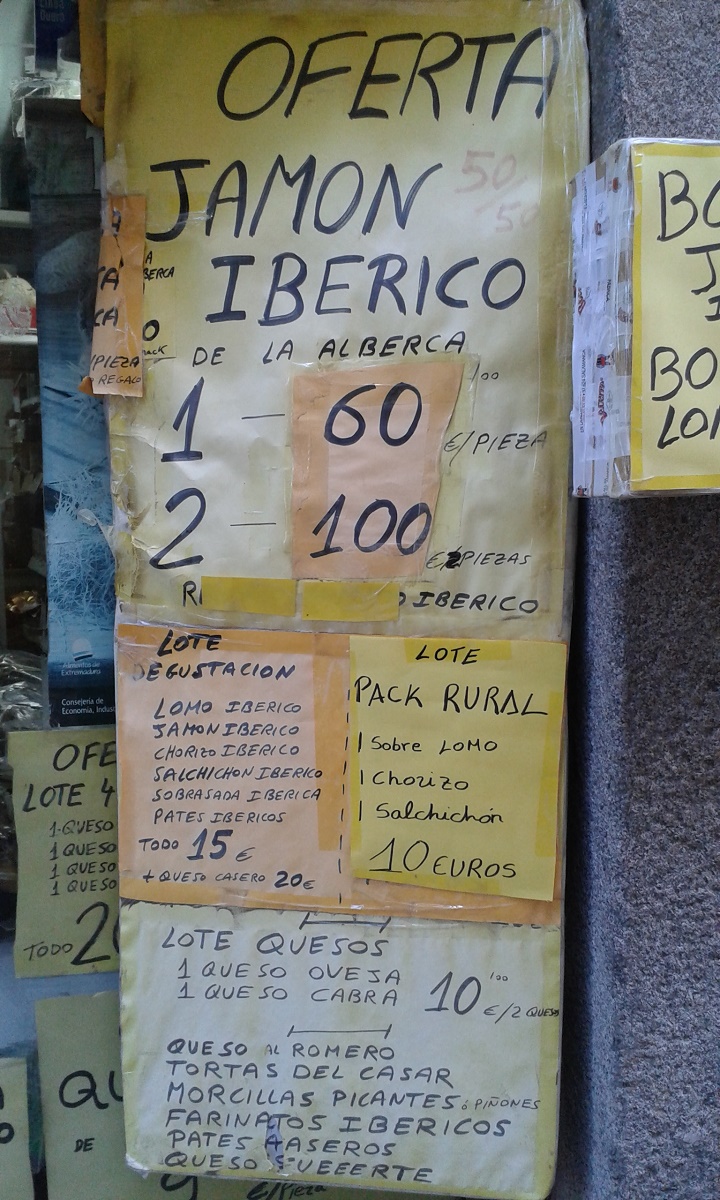 OFERTA
JAMON
50/50
IBERICO
DE LA ALBERCA
1 — 60,00 €/PIEZA
2 — 100 € 2 PIEZAS
IBERICO
LOTE
DEGUSTACION
LOMO IBERICO
JAMON IBERICO
CHORIZO IBERICO
SALCHICHON IBERICO
SOBRASADA IBERICA
PATES IBERICOS
TODO 15 €
+ QUESO CASERO 20 €
LOTE
PACK RURAL
1 Sobre LOMO
1 Chorizo
1 Salchichón
10 EUROS
LOTE QUESOS
1 QUESO OVEJA
1 QUESO CABRA
10,00 €/2 QUESOS
QUESO AL ROMERO
TORTAS DEL CASAR
MORCILLAS PICANTES ó PIÑONES
FARINATOS IBERICOS
PATES CASEROS
QUESO FUEEERTE
€/Pieza
/PIEZA
REGALO
Alimentos de
Extremadura
Consejería de
Economía, Indus
OFE
LOTE 4
1 QUESO
1 QUESO
1 QUESO
1 QUESO
TODO 2
QU
DE
BO
J
I
BO
LO